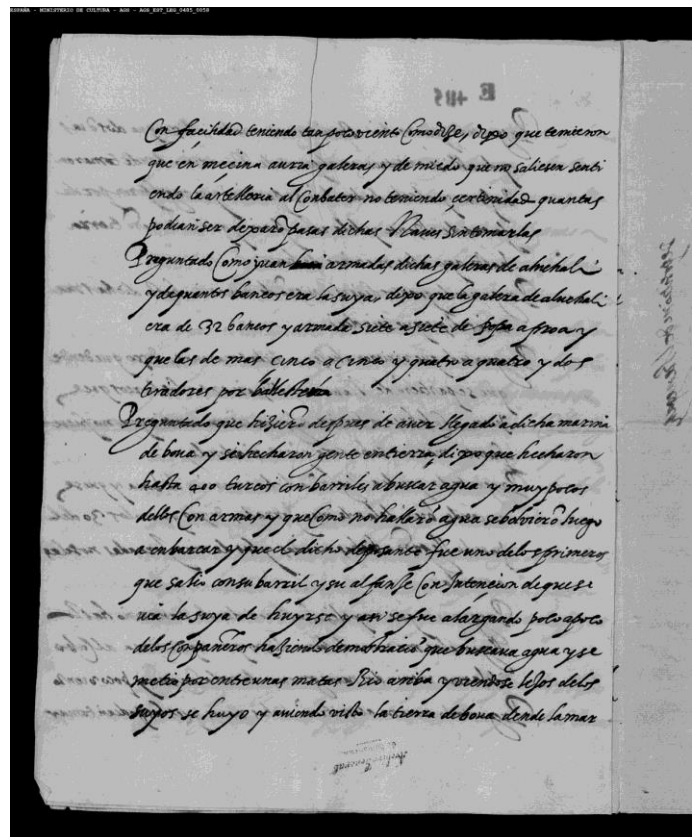 ESPAÑA - MINISTERIO DE CULTURA - AGS - AGS_EST_LEG_0485_0058
E 485
Con facilidad teniendo tan poco viento Como dize, dixo que temieron
que en mecina auria galeras y de miedo que no saliesen senti
endo la artelleria al Conbater no teniendo certenidad quantas
podian ser dexarõ pasar dichas Naues sin tomarlas
Preguntado Como yuan armadas dichas galeras de aluchali
y de quantos bancos era la suya, dixo que la galera de aluchali
era de 32 bancos y armada siete a siete de popa a proa y
que las de mas Cinco a Cinco y quatro a quatro y dos
tiradores por ballestera
Preguntado que hizierõ despues de auer llegado a dicha marina
de boua y si hecharon gente en tierra, dixo que hecharon
hasta 400 turcos con barriles a buscar agua y muy pocos
dellos Con armas y que Como no hallarõ agua se boluierõ luego
a enbarcar y que el dicho depossante fue uno delos primeros
que salio con su barril y su alfanje Con Intencion de que se
uia la suya de huyrse y asi se fue alargando poco a poco
delos Conpañeros haziendo demostraciõ que buscaua agua y se
metio por entre unas matas Rio arriba y viendose lejos delos
suyos se huyo y auiendo visto la tierra de boua dende la mar
Archivo General